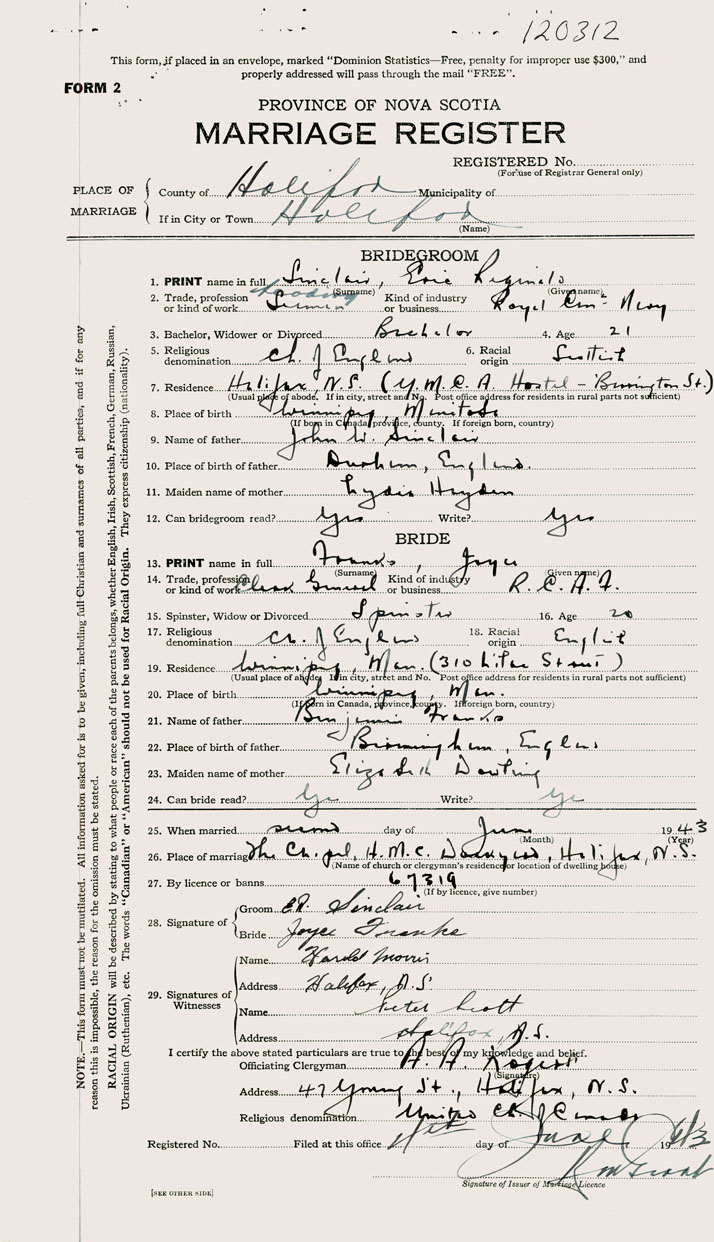 120312
This form, if placed in an envelope, marked "Dominion Statistics—Free, penalty for improper use $300," and
properly addressed will pass through the mail "FREE".
FORM 2
PROVINCE OF NOVA SCOTIA
MARRIAGE REGISTER
REGISTERED No.
(For use of Registrar General only)
PLACE OF MARRIAGE
County of Halifax Municipality of
If in City or Town Halifax
(Name)
BRIDEGROOM
1. PRINT name in full Sinclair, Eric Reginald
(Surname) (Given name)
2. Trade, profession or kind of work Seaman Kind of industry or business Royal Can. Navy
3. Bachelor, Widower or Divorced Bachelor 4. Age 21
5. Religious denomination Ch. of England 6. Racial origin Scottish
7. Residence Halifax, N.S. (Y.M.C.A. Hostel - Barrington St.)
(Usual place of abode. If in city, street and No. Post office address for residents in rural parts not sufficient)
8. Place of birth Winnipeg, Manitoba
(If born in Canada, province, county. If foreign born, country)
9. Name of father John W. Sinclair
10. Place of birth of father Durham, England.
11. Maiden name of mother Lydia Hayden
12. Can bridegroom read? Yes Write? Yes
BRIDE
13. PRINT name in full Franks, Joyce
(Surname) (Given name)
14. Trade, profession or kind of work Clerk General Kind of industry or business R.C.A.F.
15. Spinster, Widow or Divorced Spinster 16. Age 20
17. Religious denomination Ch. of England 18. Racial origin English
19. Residence Winnipeg, Man. (310 Lilac Street)
(Usual place of abode. If in city, street and No. Post office address for residents in rural parts not sufficient)
20. Place of birth Winnipeg, Man.
(If born in Canada, province, county. If foreign born, country)
21. Name of father Benjamin Franks
22. Place of birth of father Birmingham, England
23. Maiden name of mother Elizabeth Dowling
24. Can bride read? Yes Write? Yes
25. When married second day of June 1943
(Month) (Year)
26. Place of marriage The Chapel, H.M.C. Dockyard, Halifax, N.S.
(Name of church or clergyman's residence or location of dwelling house)
27. By licence or banns 67319
(If by licence, give number)
28. Signature of
Groom E.R. Sinclair
Bride Joyce Franks
29. Signatures of Witnesses
Name Harold Morris
Address Halifax, N.S.
Name Peter Scott
Address Halifax, N.S.
I certify the above stated particulars are true to the best of my knowledge and belief.
Officiating Clergyman A. A. Rogers
(Signature)
Address 47 Young St., Halifax, N.S.
Religious denomination United Ch. of Canada
Registered No. Filed at this office day of June 1943
Signature of Issuer of Marriage Licence
[SEE OTHER SIDE]
NOTE.—This form must not be mutilated. All information asked for is to be given, including full Christian and surnames of all parties, and if for any
reason this is impossible, the reason for the omission must be stated.
RACIAL ORIGIN will be described by stating to what people or race each of the parents belongs, whether English, Irish, Scottish, French, German, Russian,
Ukrainian (Ruthenian), etc. The words "Canadian" or "American" should not be used for Racial Origin. They express citizenship (nationality).